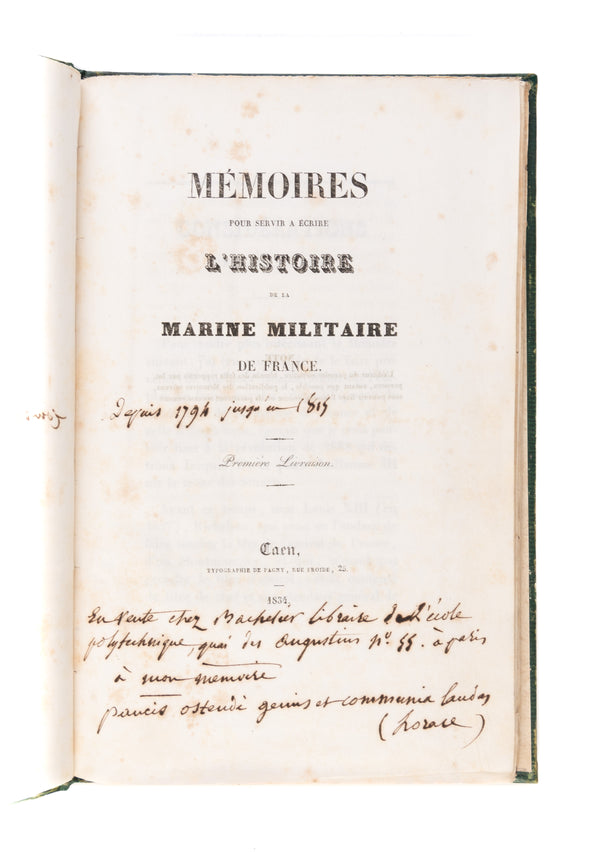 MÉMOIRES
POUR SERVIR A ÉCRIRE
L'HISTOIRE
DE LA
MARINE MILITAIRE
DE FRANCE.
Depuis 1794 jusqu'en 1815
Première Livraison.
Caen,
TYPOGRAPHIE DE PAGNY, RUE FROIDE, 25.
1834.
En vente chez Bachelier libraire de l'école
polytechnique, quai des augustins nº 55. à paris
à mon mémoire
paucis ostendi gemis et communia laudas
(horace)